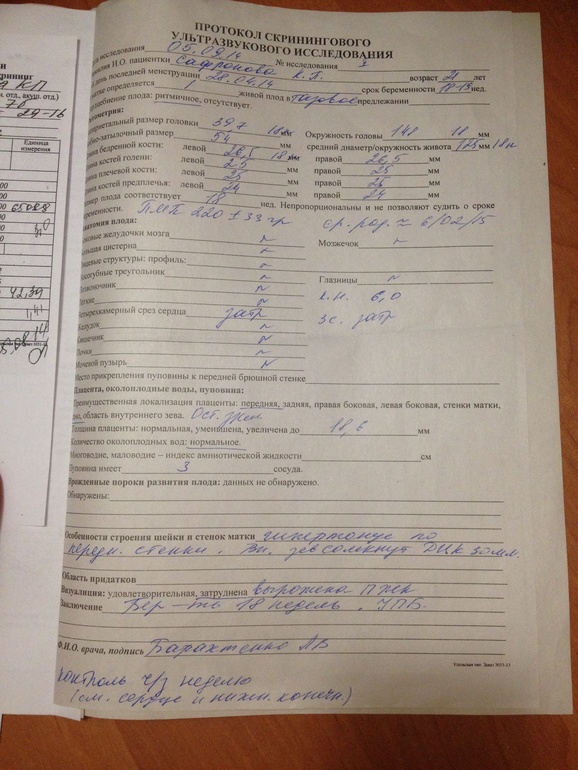 ПРОТОКОЛ СКРИНИНГОВОГО
УЛЬТРАЗВУКОВОГО ИССЛЕДОВАНИЯ
исследования 05.09.14 № исследования 1
И.О. пациентки Сафронова К.П. возраст 21 лет
день последней менструации 28.04.14 срок беременности 18-19 нед.
определяется 1 живой плод в тазовое предлежании
плода: ритмичное, отсутствует.
размер головки 39,7 18 мм Окружность головы 148 18 мм
размер 54 мм средний диаметр/окружность живота 125 мм 18н
бедренной кости: левой 26,5 18 мм правой 26,5 мм
кости голени: левой 25 мм правой 25 мм
плечевой кости: левой 25 мм правой 25 мм
костей предплечья: левой 24 мм правой 24 мм
плода соответствует 18 нед. Непропорциональны и не позволяют судить о сроке
беременности. ПМП 220 ± 33 гр ср. род. ≈ 6/02/15
плода:
желудочки мозга N Мозжечок N
цистерна N
структуры: профиль: N
треугольник N Глазницы N
N к.н. 6,0
Легкие N
Четырехкамерный срез сердца затр зс. затр
Желудок N
Кишечник N
Почки N
Мочевой пузырь N
Место прикрепления пуповины к передней брюшной стенке
Плацента, околоплодные воды, пуповина:
Преимущественная локализация плаценты: передняя, задняя, правая боковая, левая боковая, стенки матки,
дно, область внутреннего зева.
Толщина плаценты: нормальная, уменьшена, увеличена до 18,6 мм
Количество околоплодных вод: нормальное.
Многоводие, маловодие – индекс амниотической жидкости см
Пуповина имеет 3 сосуда.
Врожденные пороки развития плода: данных не обнаружено.
Обнаружены:
Особенности строения шейки и стенок матки гипертонус по
передн. стенке. Вн. зев сомкнут ДЦК 30мм.
Область придатков
Визуализация: удовлетворительная, затруднена выражена ПЖК
Заключение Бер-ть 18 недель. УПБ.
Ф.И.О. врача, подпись Барахтенко АВ
контроль ч/з неделю
(см. сердце и нижн. конечн.)
скрининг
Единица
измерения